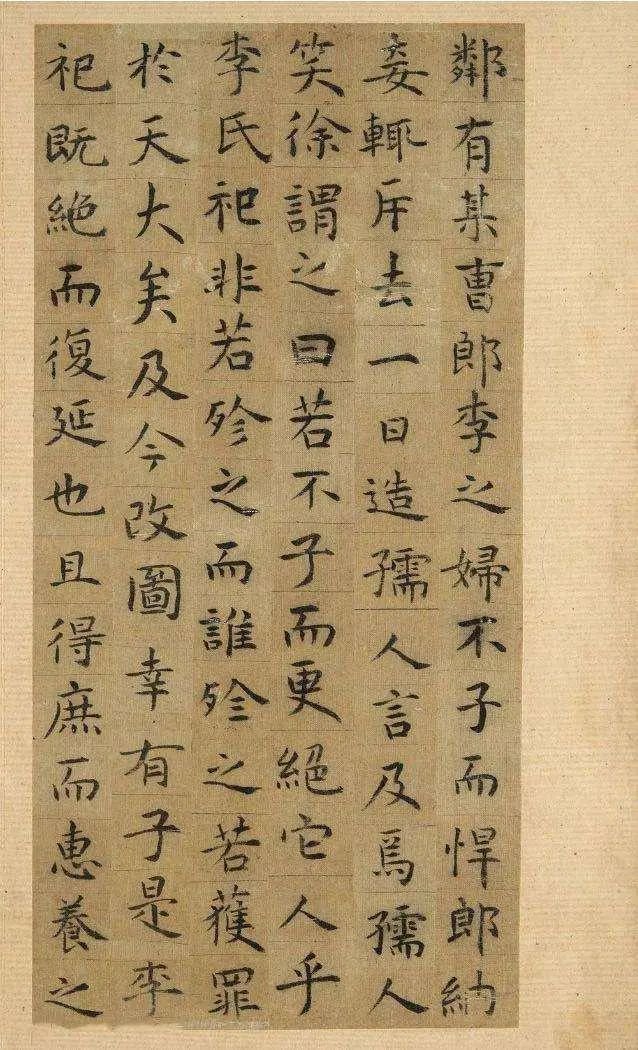 鄰有某曹郎李之婦不子而悍郎納
妾輒斥去一日造孺人言及焉孺人
笑徐謂之曰若不子而更絕它人乎
李氏祀非若殄之而誰殄之若獲罪
於天大矣及今改圖幸有子是李
祀既絕而復延也且得庶而惠養之